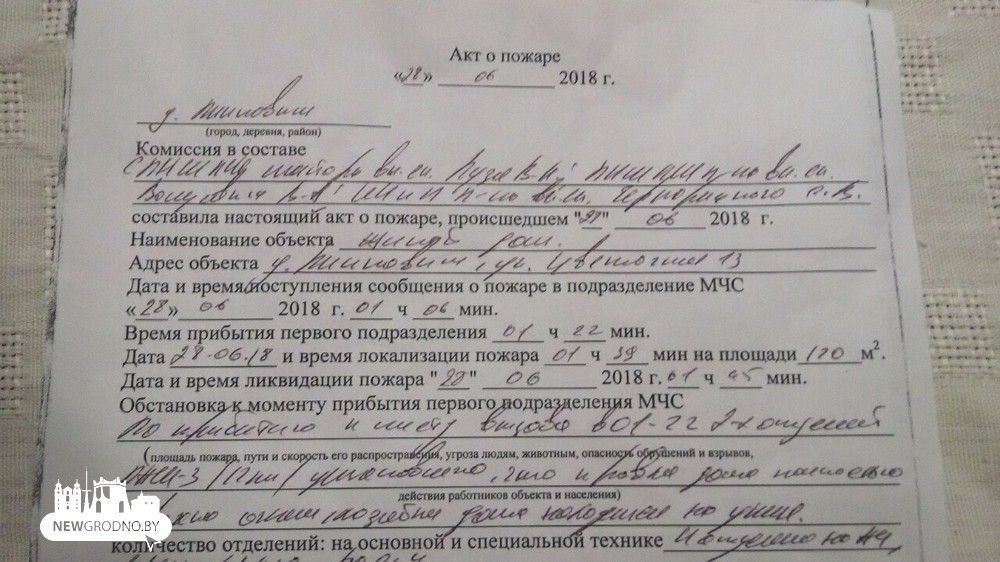 Акт о пожаре
«28» 06 2018 г.
д.
(город, деревня, район)
Комиссия в составе
майора вн.сл. В.И. вн.сл.
вн.сл.
составила настоящий акт о пожаре, происшедшем "28" 06 2018 г.
Наименование объекта жилой дом.
Адрес объекта д. ул. Цветочная 13
Дата и время поступления сообщения о пожаре в подразделение МЧС
«28» 06 2018 г. 01 ч 06 мин.
Время прибытия первого подразделения 01 ч 22 мин.
Дата 28.06.18 и время локализации пожара 01 ч 39 мин на площади 120 м².
Дата и время ликвидации пожара "28" 06 2018 г. 01 ч 45 мин.
Обстановка к моменту прибытия первого подразделения МЧС
По прибытию к месту вызова в 01-22 2-х отделений
(площадь пожара, пути и скорость его распространения, угроза людям, животным, опасность обрушений и взрывов,
установлено, что кровля дома полностью
действия работников объекта и населения)
огнем, хозяйка дома находится на улице.
количество отделений: на основной и специальной технике
NEWGRODNO.BY